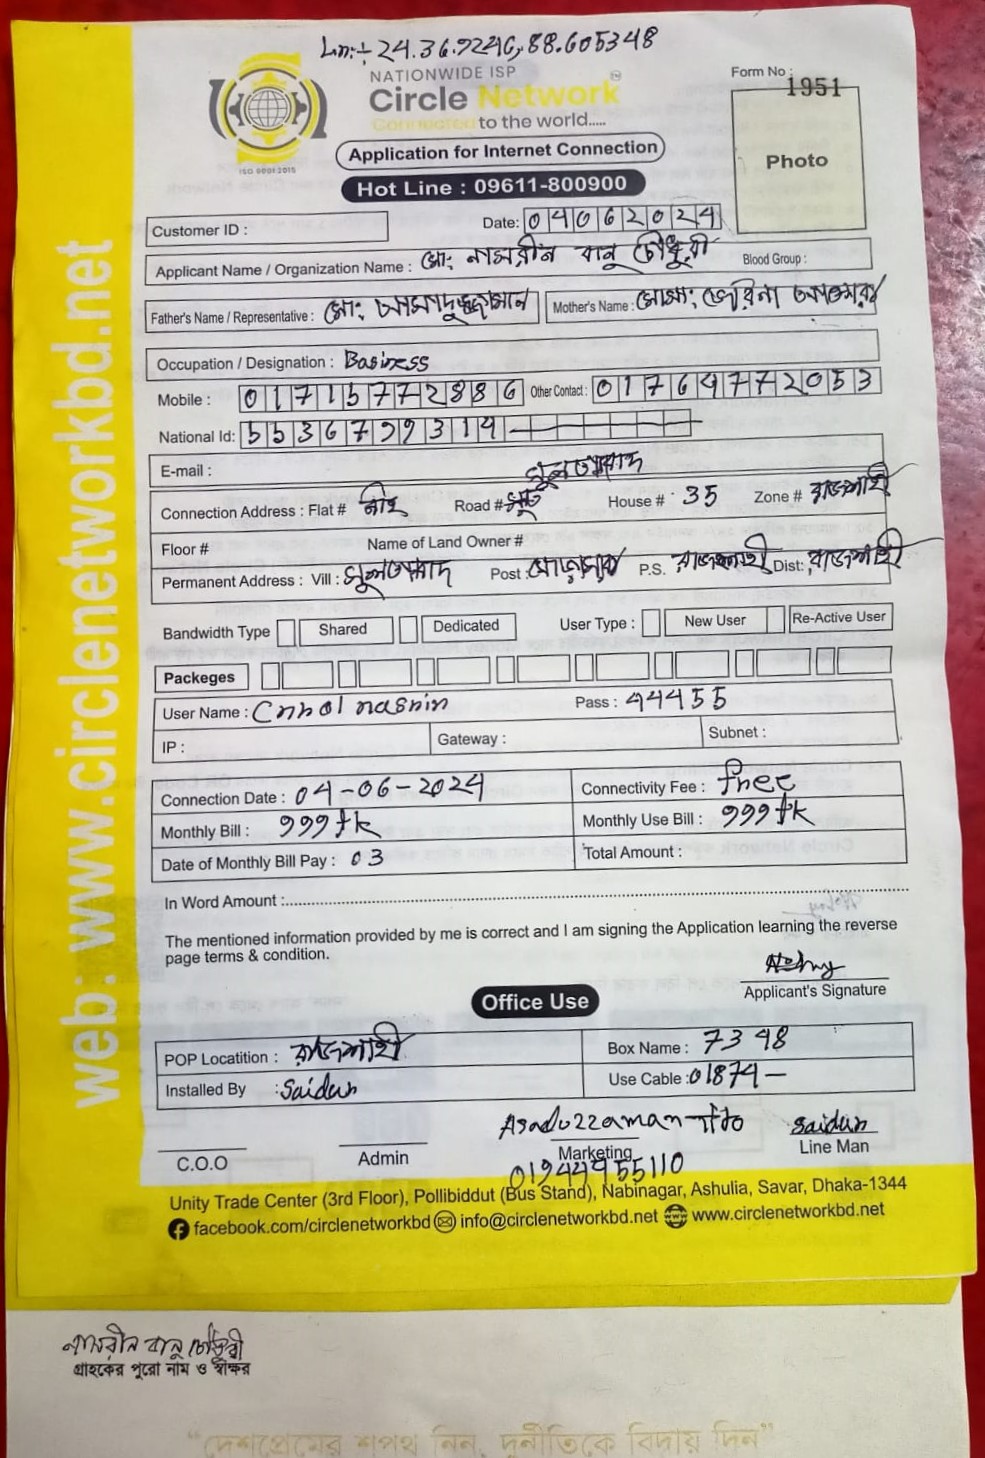 Ln:- 24.36.9246,88.605348
NATIONWIDE ISP
Circle Network
Connected to the world.....
ISO 9001:2015
Form No : 1951
Photo
Application for Internet Connection
Hot Line : 09611-800900
Customer ID :
Date: 04062024
Applicant Name / Organization Name : মো: নাসরীন বানু চৌধুরী Blood Group :
Father's Name / Representative : মো: আসাদুজ্জামান Mother's Name : মোসা:
Occupation / Designation : Basiness
Mobile : 01715772886 Other Contact : 01764772053
National Id: 5536799314
E-mail :
সুলতানাবাদ
Connection Address : Flat # Road # House # 35 Zone # রাজশাহী
Floor # Name of Land Owner #
Permanent Address : Vill : সুলতানাবাদ Post : ঘোড়ামারা P.S. রাজশাহী Dist: রাজশাহী
Bandwidth Type Shared Dedicated User Type : New User Re-Active User
Packeges
User Name : Cnbol nasrin Pass : 44455
IP : Gateway : Subnet :
Connection Date : 04-06-2024 Connectivity Fee : free
Monthly Bill : 999 tk Monthly Use Bill : 999 tk
Date of Monthly Bill Pay : 03 Total Amount :
In Word Amount :
The mentioned information provided by me is correct and I am signing the Application learning the reverse
page terms & condition.
Applicant's Signature
Office Use
POP Locatition : রাজশাহী Box Name : 7348
Installed By : Saidur Use Cable : 01874-
Asaduzzaman Saidur
C.O.O Admin Marketing Line Man
01944955110
Unity Trade Center (3rd Floor), Pollibiddut (Bus Stand), Nabinagar, Ashulia, Savar, Dhaka-1344
facebook.com/circlenetworkbd info@circlenetworkbd.net www.circlenetworkbd.net
web: www.circlenetworkbd.net
নাসরীন বানু চৌধুরী
গ্রাহকের পুরো নাম ও স্বীক্ষর
“দেশপ্রেমের শপথ নিন, দুর্নীতিকে বিদায় দিন”